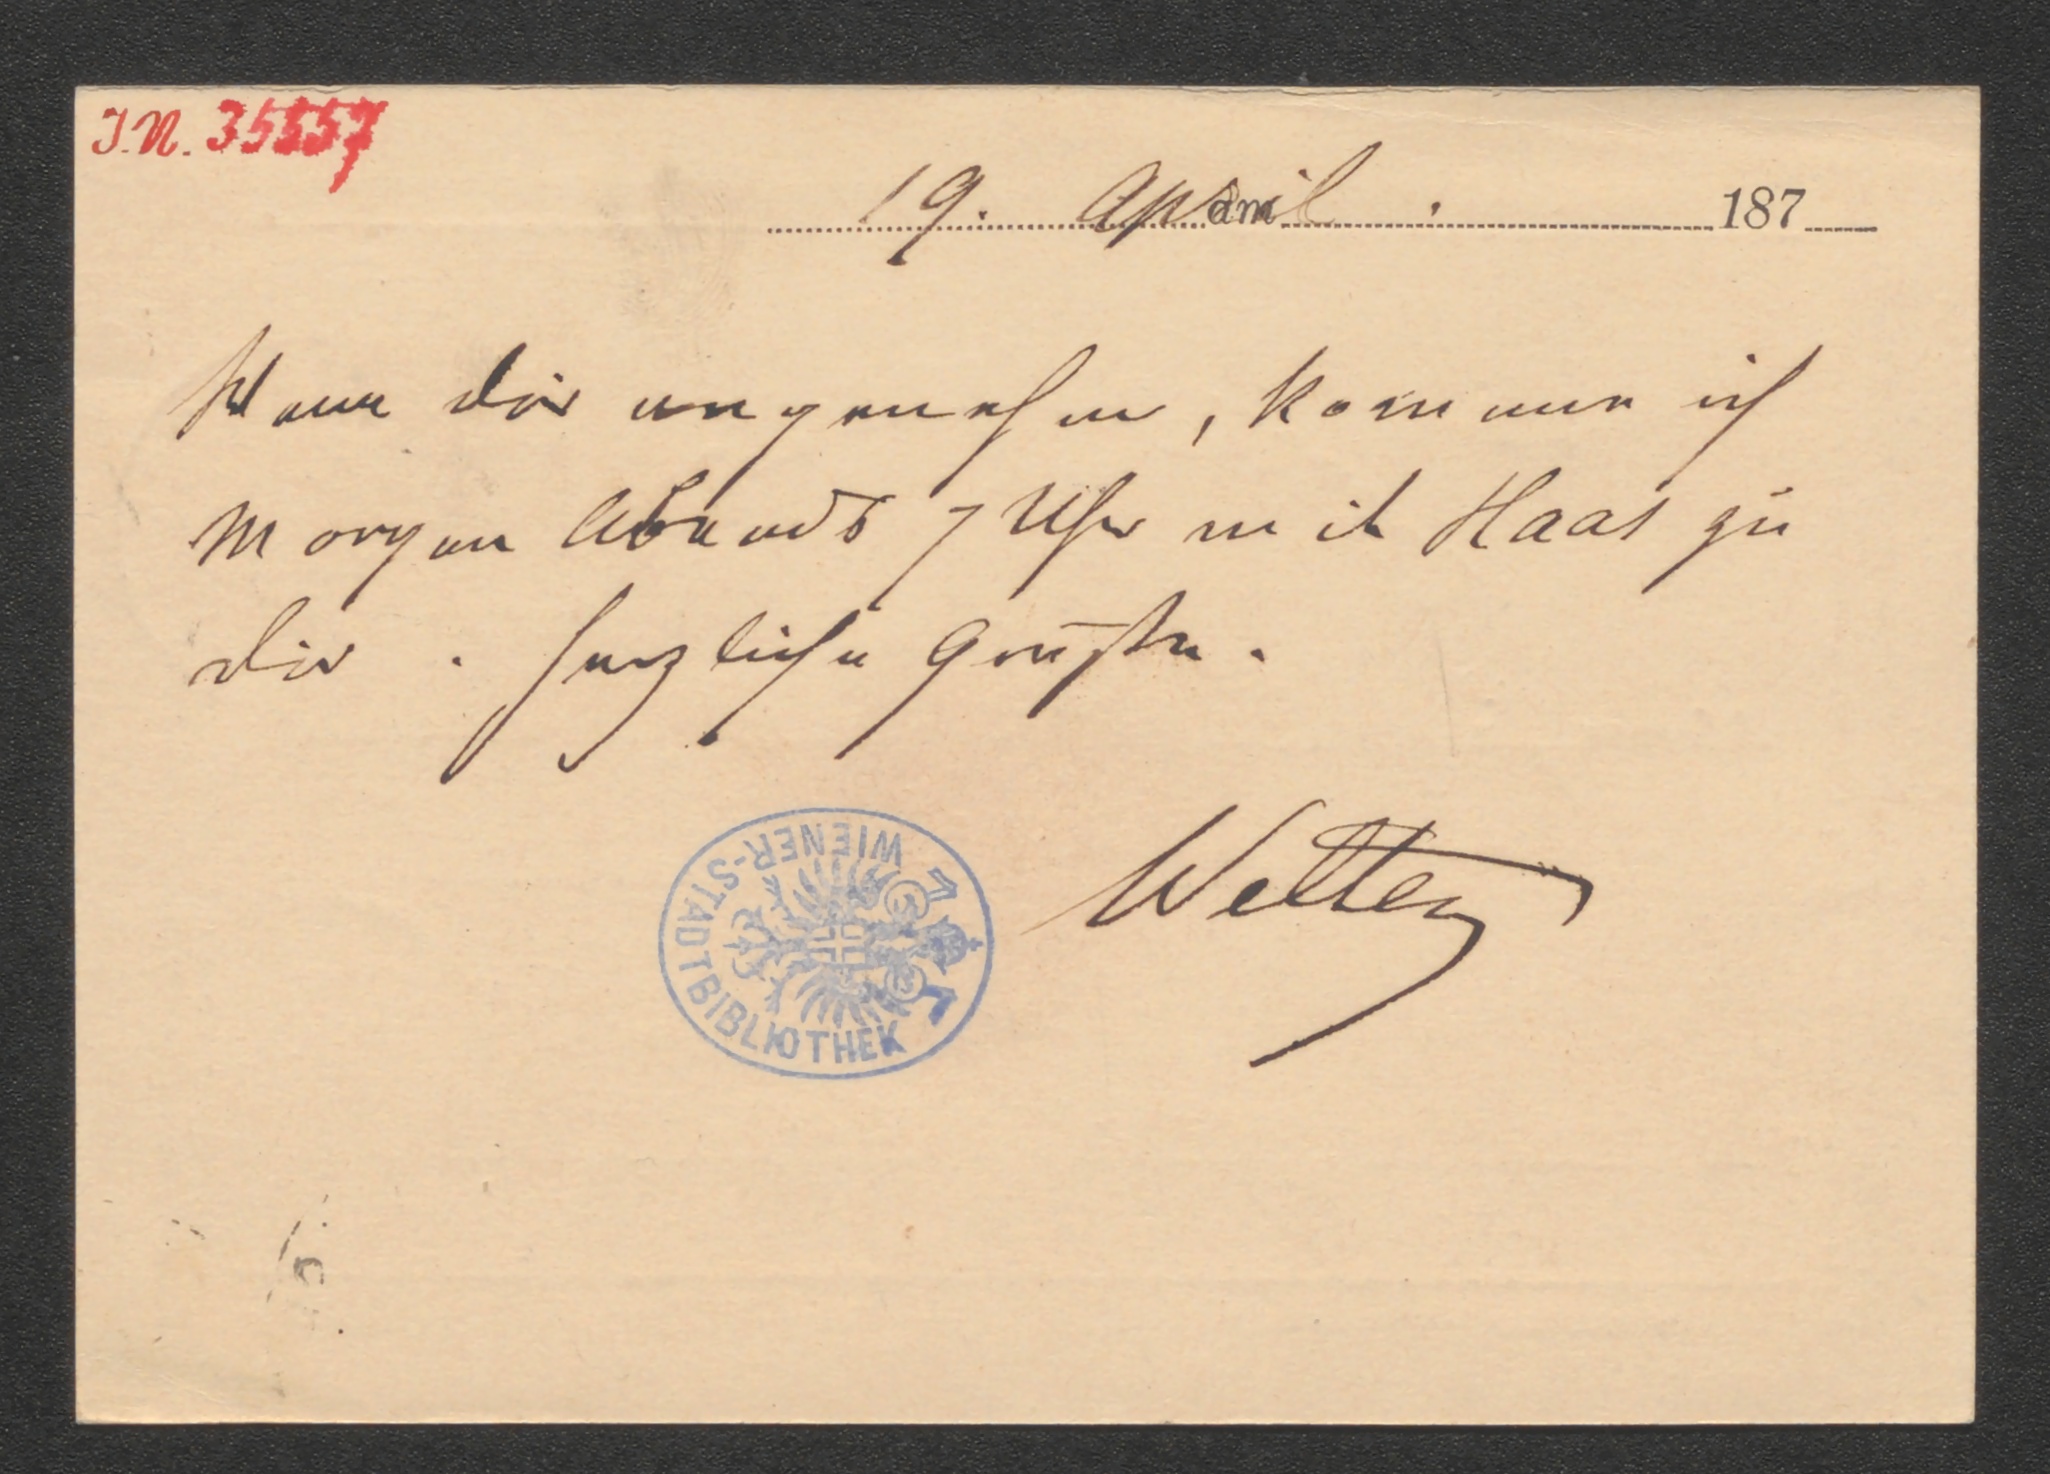 J.N. 35557
19. April am 187
Wenn dir angenehm, komme ich
morgen Abends 7 Uhr mit Haas zu
dir. Herzliche Grüße.
Welten
WIENER-STADTBIBLIOTHEK